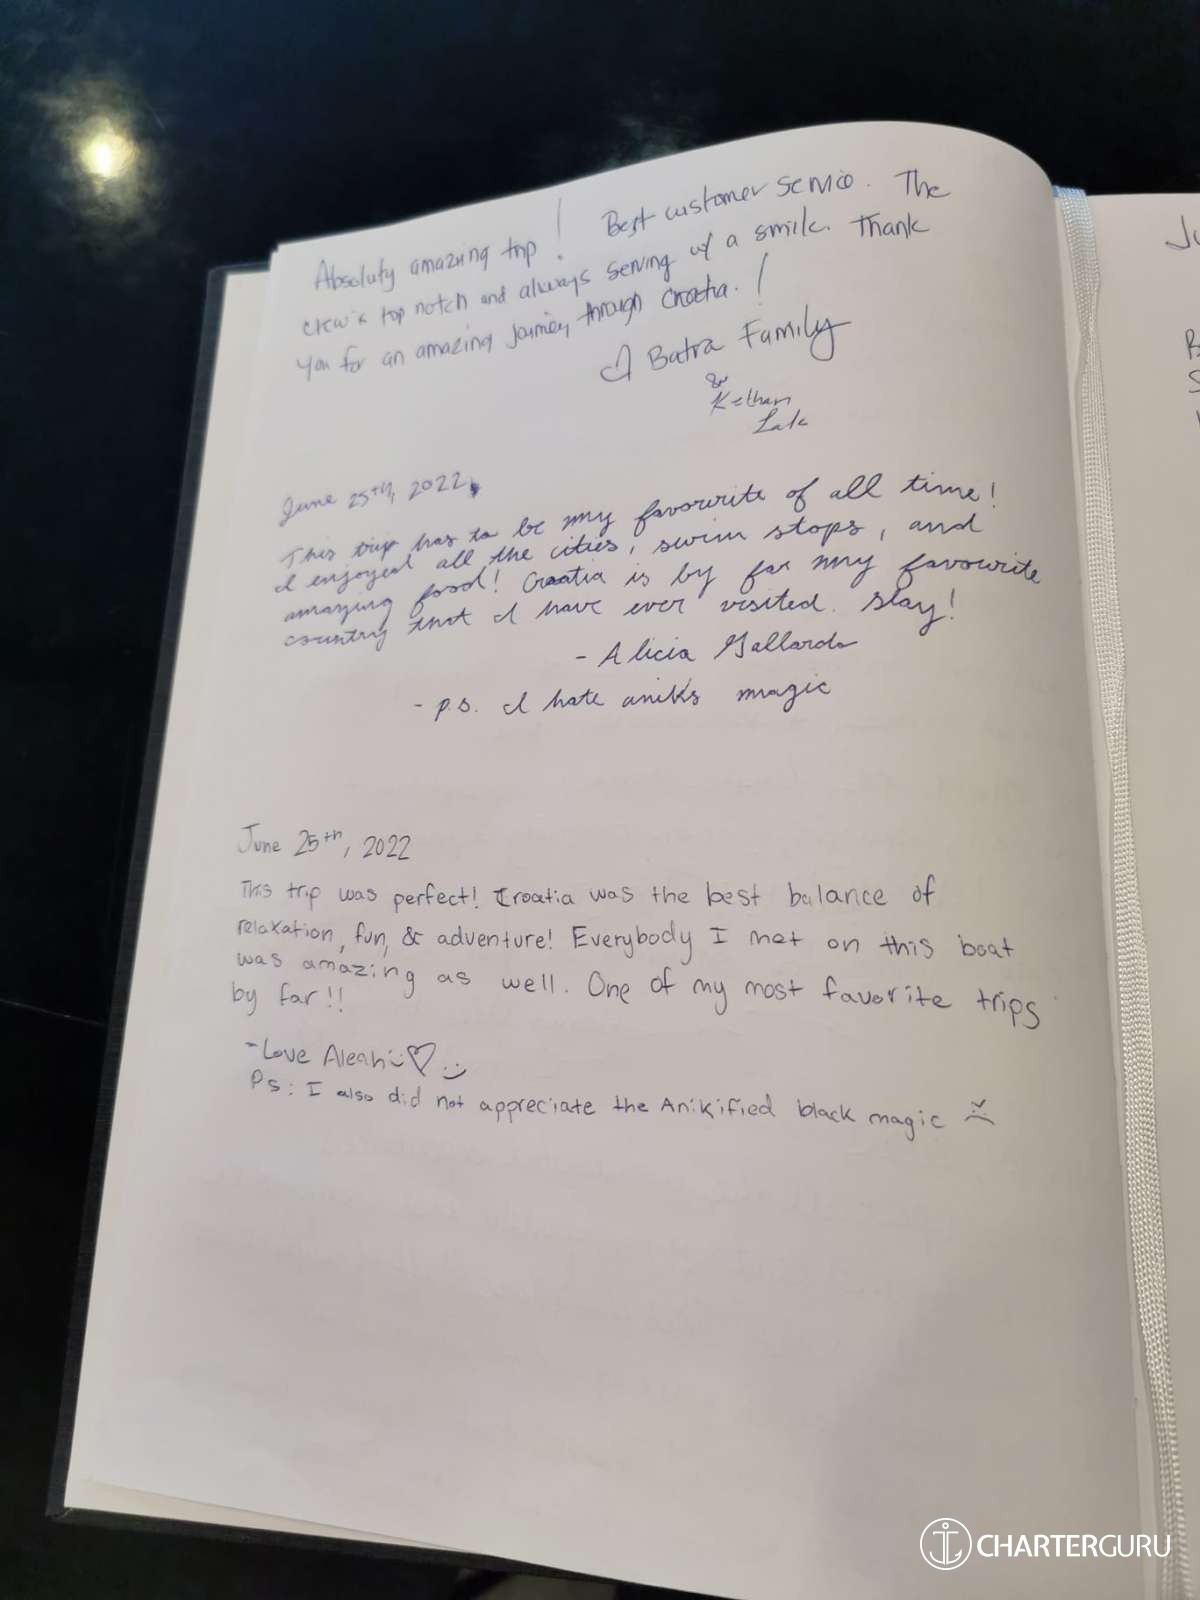 Absoluty amazing trip! Best customer service. The
crew's top notch and always serving w/ a smile. Thank
you for an amazing journey through Croatia.!
♡ Batra Family
&
June 25th, 2022
This trip has to be my favourite of all time!
I enjoyed all the cities, swim stops, and
amazing food! Croatia is by far my favourite
country that I have ever visited. Slay!
- Alicia Gallardo
- p.s. I hate anik's magic
June 25th, 2022
This trip was perfect! Croatia was the best balance of
relaxation, fun, & adventure! Everybody I met on this boat
was amazing as well. One of my most favorite trips
by far!!
-Love Aleah :) ♡ :)
Ps: I also did not appreciate the Anikified black magic :(
Ju
CHARTERGURU